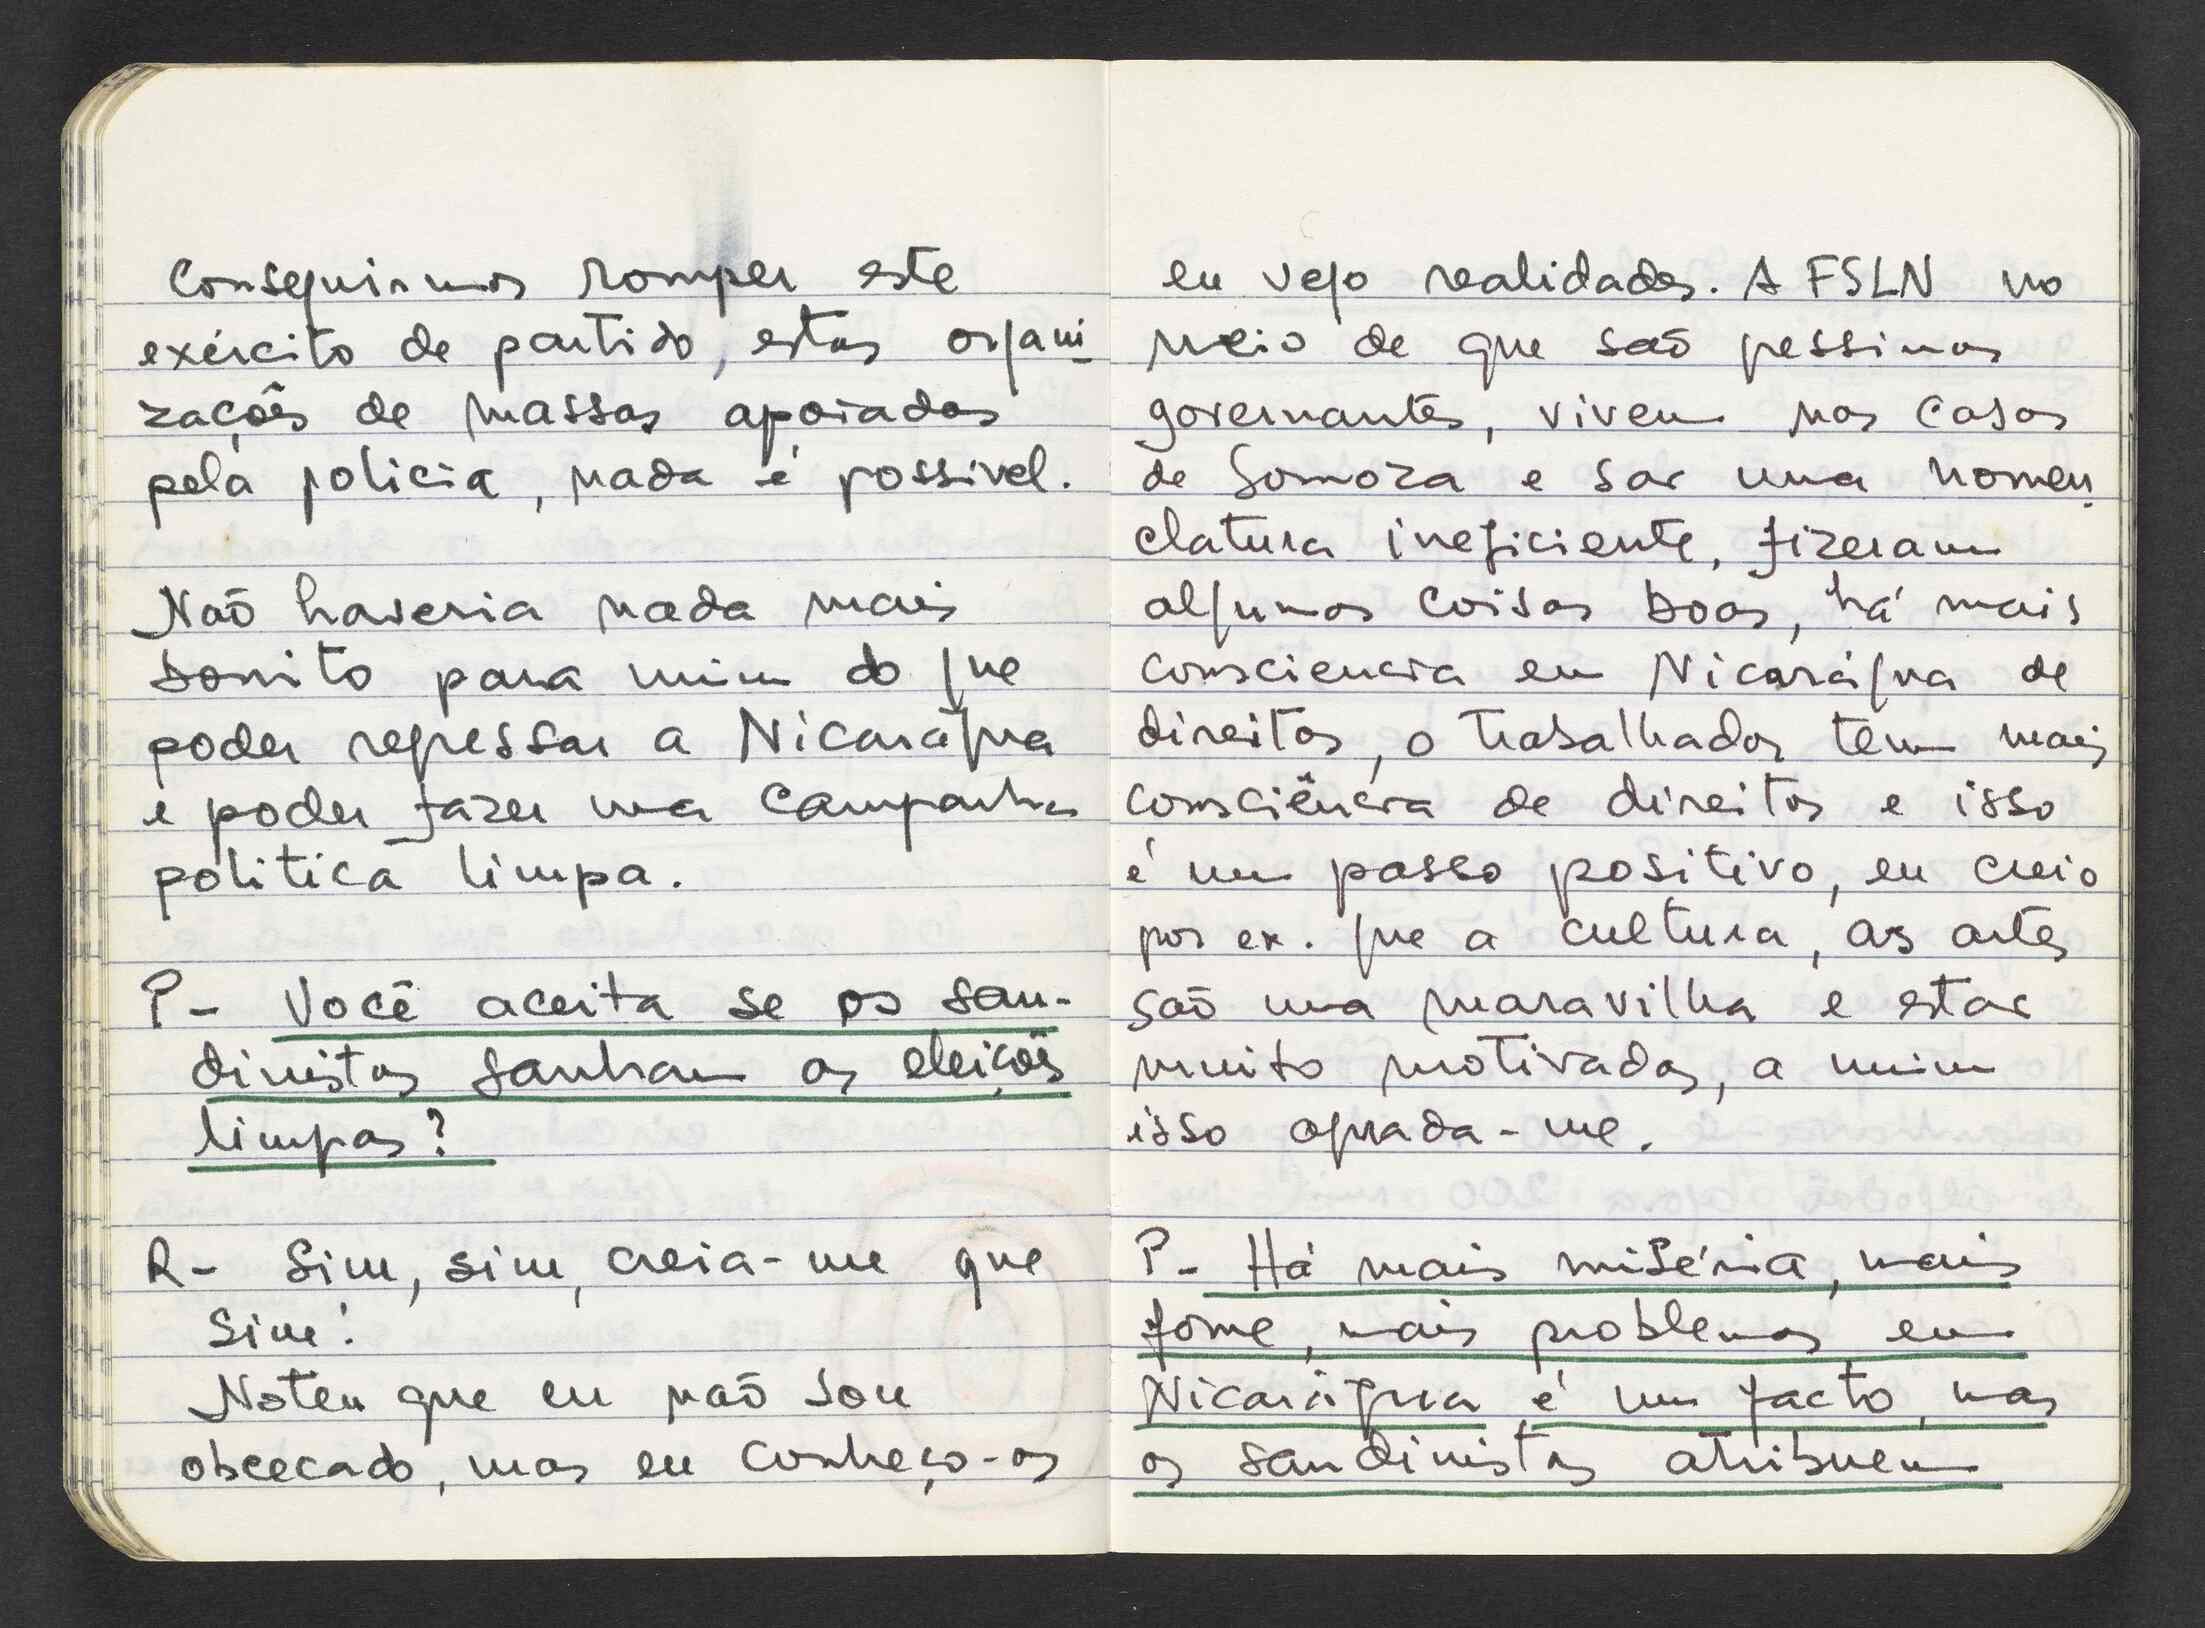 Conseguirmos romper este
exército de partido, estas organi
zações de massas apoiadas
pela policia, nada é possivel.
Não haveria nada mais
bonito para mim do que
poder regressar a Nicarágua
e poder fazer uma campanha
politica limpa.
P- Você aceita se os san-
dinistas ganham as eleições
limpas?
R- Sim, sim, creia-me que
sim!
Notem que eu não sou
obcecado, mas eu conheço-os
eu vejo realidades. A FSLN no
meio de que são pessimos
governantes, vivem nas casas
de Somoza e sao uma nomen
clatura ineficiente, fizeram
algumas coisas boas, há mais
consciencia em Nicarágua de
direitos, o trabalhador tem mais
consciência de direitos e isso
é um passo positivo, eu creio
por ex. que a cultura, as artes
são uma maravilha e estao
muito motivadas, a mim
isso agrada-me.
P- Há mais miséria, mais
fome, mais problemas em
Nicarágua é um facto, mas
os sandinistas atribuem